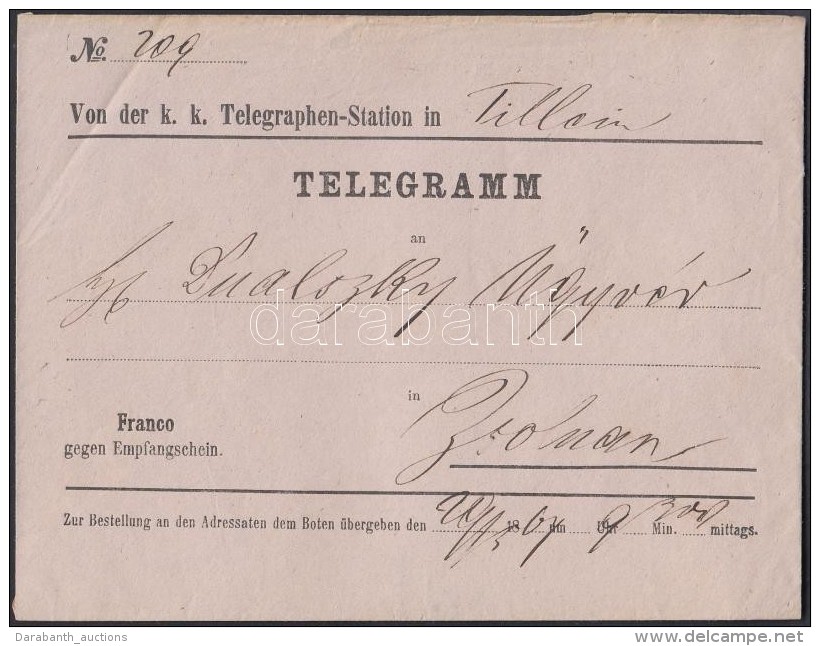 No. 209
Von der k. k. Telegraphen-Station in Sillein
TELEGRAMM
an
Dualszky Ügyvéd
darabanth
in
Franco
gegen Empfangschein.
Zsolnan
Zur Bestellung an den Adressaten dem Boten übergeben den 18 67 um 9 Uhr Min. mittags.
Darabanth_auctions
delcampe.net